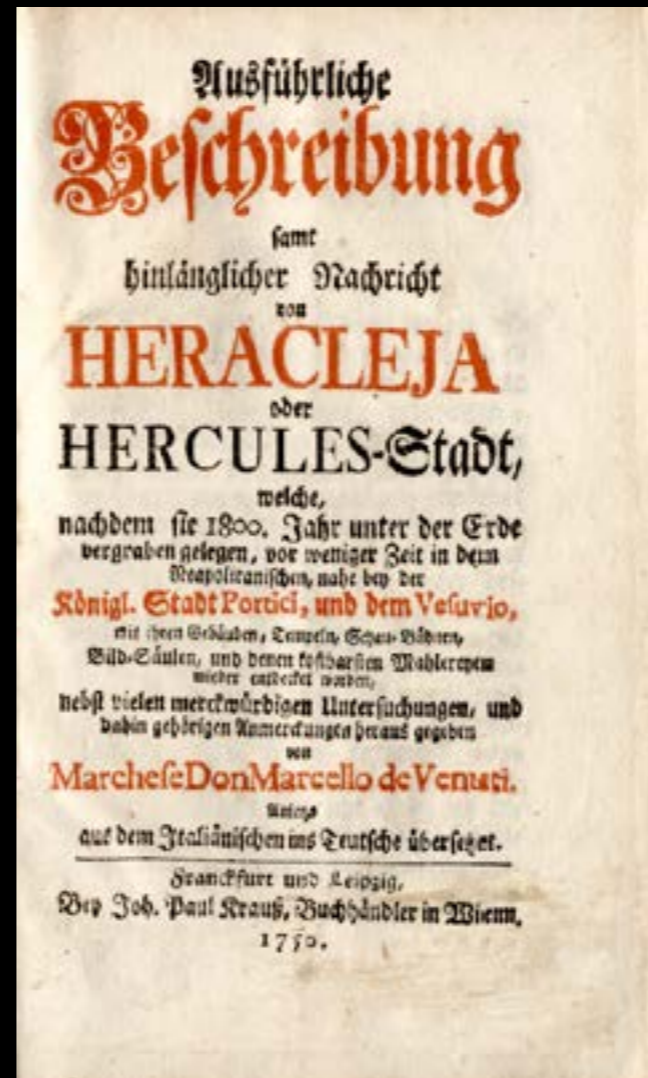 Ausführliche
Beſchreibung
ſamt
hinlänglicher Nachricht
von
HERACLEJA
oder
HERCULES-Stadt,
welche,
nachdem ſie 1800. Jahr unter der Erde
vergraben gelegen, vor weniger Zeit in dem
Neapolitaniſchen, nahe bey der
Königl. Stadt Portici, und dem Veſuvio,
mit ihren Gebäuden, Tempeln, Schau-Bühnen,
Bild-Säulen, und denen koſtbarſten Mahlereyen
wieder entdecket worden,
nebſt vielen merckwürdigen Unterſuchungen, und
dahin gehörigen Anmerckungen heraus gegeben
von
Marcheſe Don Marcello de Venuti.
aus dem Italiäniſchen ins Teutſche überſetzet.
Franckfurt und Leipzig,
Bey Joh. Paul Krauß, Buchhändler in Wienn.
1750.